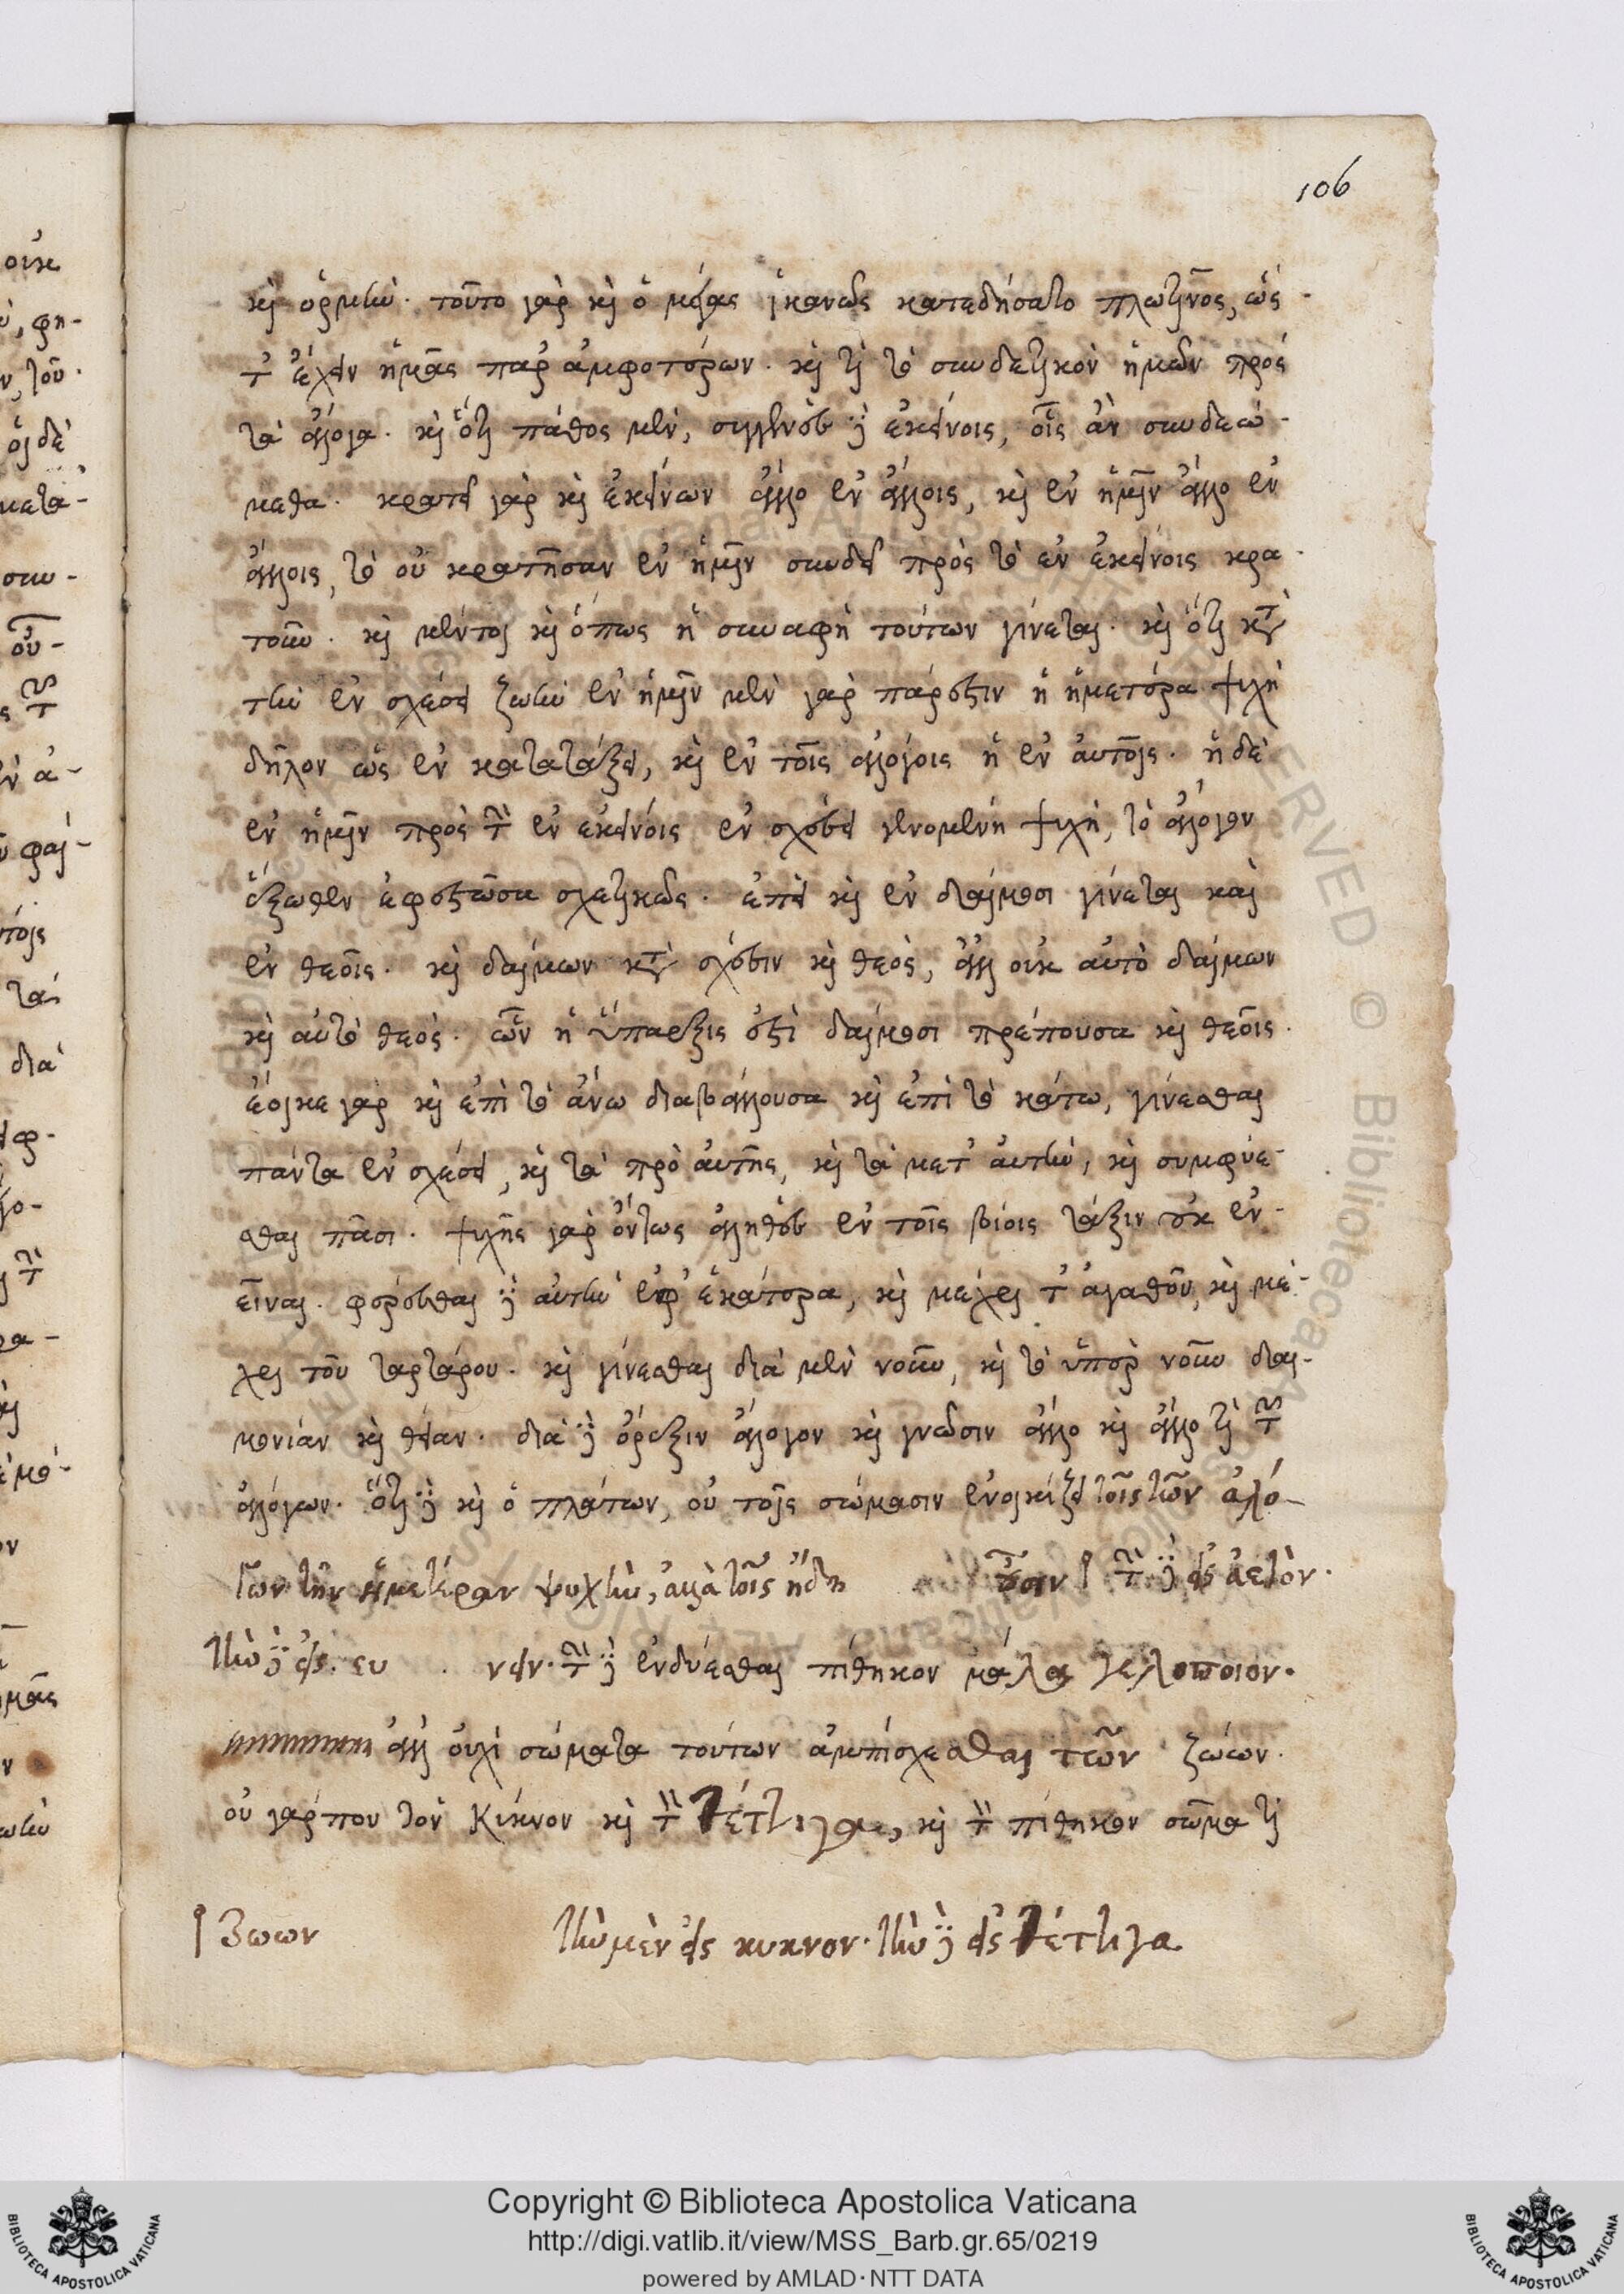 106
καὶ ὁρμὴν. τοῦτο γὰρ καὶ ὁ μέγας ἱκανῶς κατεδήσατο πλωτῖνος, ὡς
ἔχειν ἡμᾶς παρ ἀμφοτέρων. καὶ τί τὸ συνδετικὸν ἡμῶν πρὸς
τὰ ἄλογα. καὶ ὅτι πάθος μὲν, συγγενὲς δὲ ἐκείνοις, οἷς ἂν συνδεώ-
μεθα. κρατεῖ γὰρ καὶ ἐκείνων ἄλλο ἐν ἄλλοις, καὶ ἐν ἡμῖν ἄλλο ἐν
ἄλλοις, τὸ οὖ κρατῆσαν ἐν ἡμῖν συνδεῖ πρὸς τὸ ἐν ἐκείνοις κρα-
τοῦν. καὶ μέντοι καὶ ὅπως ἡ συναφὴ τούτων γίνεται. καὶ ὅτι κατὰ
τὴν ἐν σχέσει ζωὴν ἐν ἡμῖν μὲν γὰρ πάρεστιν ἡ ἡμετέρα ψυχὴ
δῆλον ὡς ἐν κατατάξει, καὶ ἐν τοῖς ἀλόγοις ἡ ἐν αὐτοῖς. ἡ δὲ
ἐν ἡμῖν πρὸς τὴν ἐν ἐκείνοις ἐν σχέσει γενομένη ψυχὴ, τὸ ἄλογον
ἔξωθεν ἐφεστῶσα σχετικῶς. ἐπεὶ καὶ ἐν δαίμοσι γίνεται καὶ
ἐν θεοῖς. καὶ δαίμων κατὰ σχέσιν καὶ θεὸς, ἀλλ οὐκ αὐτὸ δαίμων
καὶ αὐτὸ θεὸς. ὧν ἡ ὕπαρξις ἐστὶ δαίμοσι πρέπουσα καὶ θεοῖς.
ἔοικε γὰρ καὶ ἐπὶ τὸ ἄνω διαβάλλουσα καὶ ἐπὶ τὸ κάτω, γίνεσθαι
πάντα ἐν σχέσει, καὶ τὰ πρὸ αὐτῆς, καὶ τὰ μετ αὐτὴν, καὶ συμφύε-
σθαι πᾶσι. ψυχῆς γὰρ ὄντως ἀληθὲς ἐν τοῖς βίοις τάξιν οὐκ ἐν-
εῖναι. φέρεσθαι δὲ αὐτὴν ἐφ ἑκάτερα, καὶ μέχρι τ ἀγαθοῦ, καὶ μέ-
χρι τοῦ ταρτάρου. καὶ γίνεσθαι διὰ μὲν νοῦν, καὶ τὸ ὑπὲρ νοῦν δαι-
μονίαν καὶ θείαν. διὰ δὲ ὄρεξιν ἄλογον καὶ γνῶσιν ἄλλο καὶ ἄλλο τι τῶν
ἀλόγων. ὅτι δὲ καὶ ὁ πλάτων, οὐ τοῖς σώμασιν ἐνοικίζει τοῖς τῶν ἀλό-
γων τὴν ἡμετέραν ψυχὴν, ἀλλὰ τοῖς ἤδη τὸν δὲ εἰς ἀετὸν.
τὴν δὲ εἰς. ευ . νειν. τὸν δὲ ἐνδύεσθαι πίθηκον μάλα γελοποιον.
ἀλλ οὐχὶ σώματα τούτων ἀμπίσχεσθαι τῶν ζώων.
οὐ γάρ που τὸν κύκνον καὶ τὸν τέτλιγα, καὶ τὸν πίθηκον σῶμα τι
ζωων τὴν μὲν εἰς κυκνον. τὴν δὲ εἰς τέτλιγα
Copyright © Biblioteca Apostolica Vaticana
http://digi.vatlib.it/view/MSS_Barb.gr.65/0219
powered by AMLAD · NTT DATA